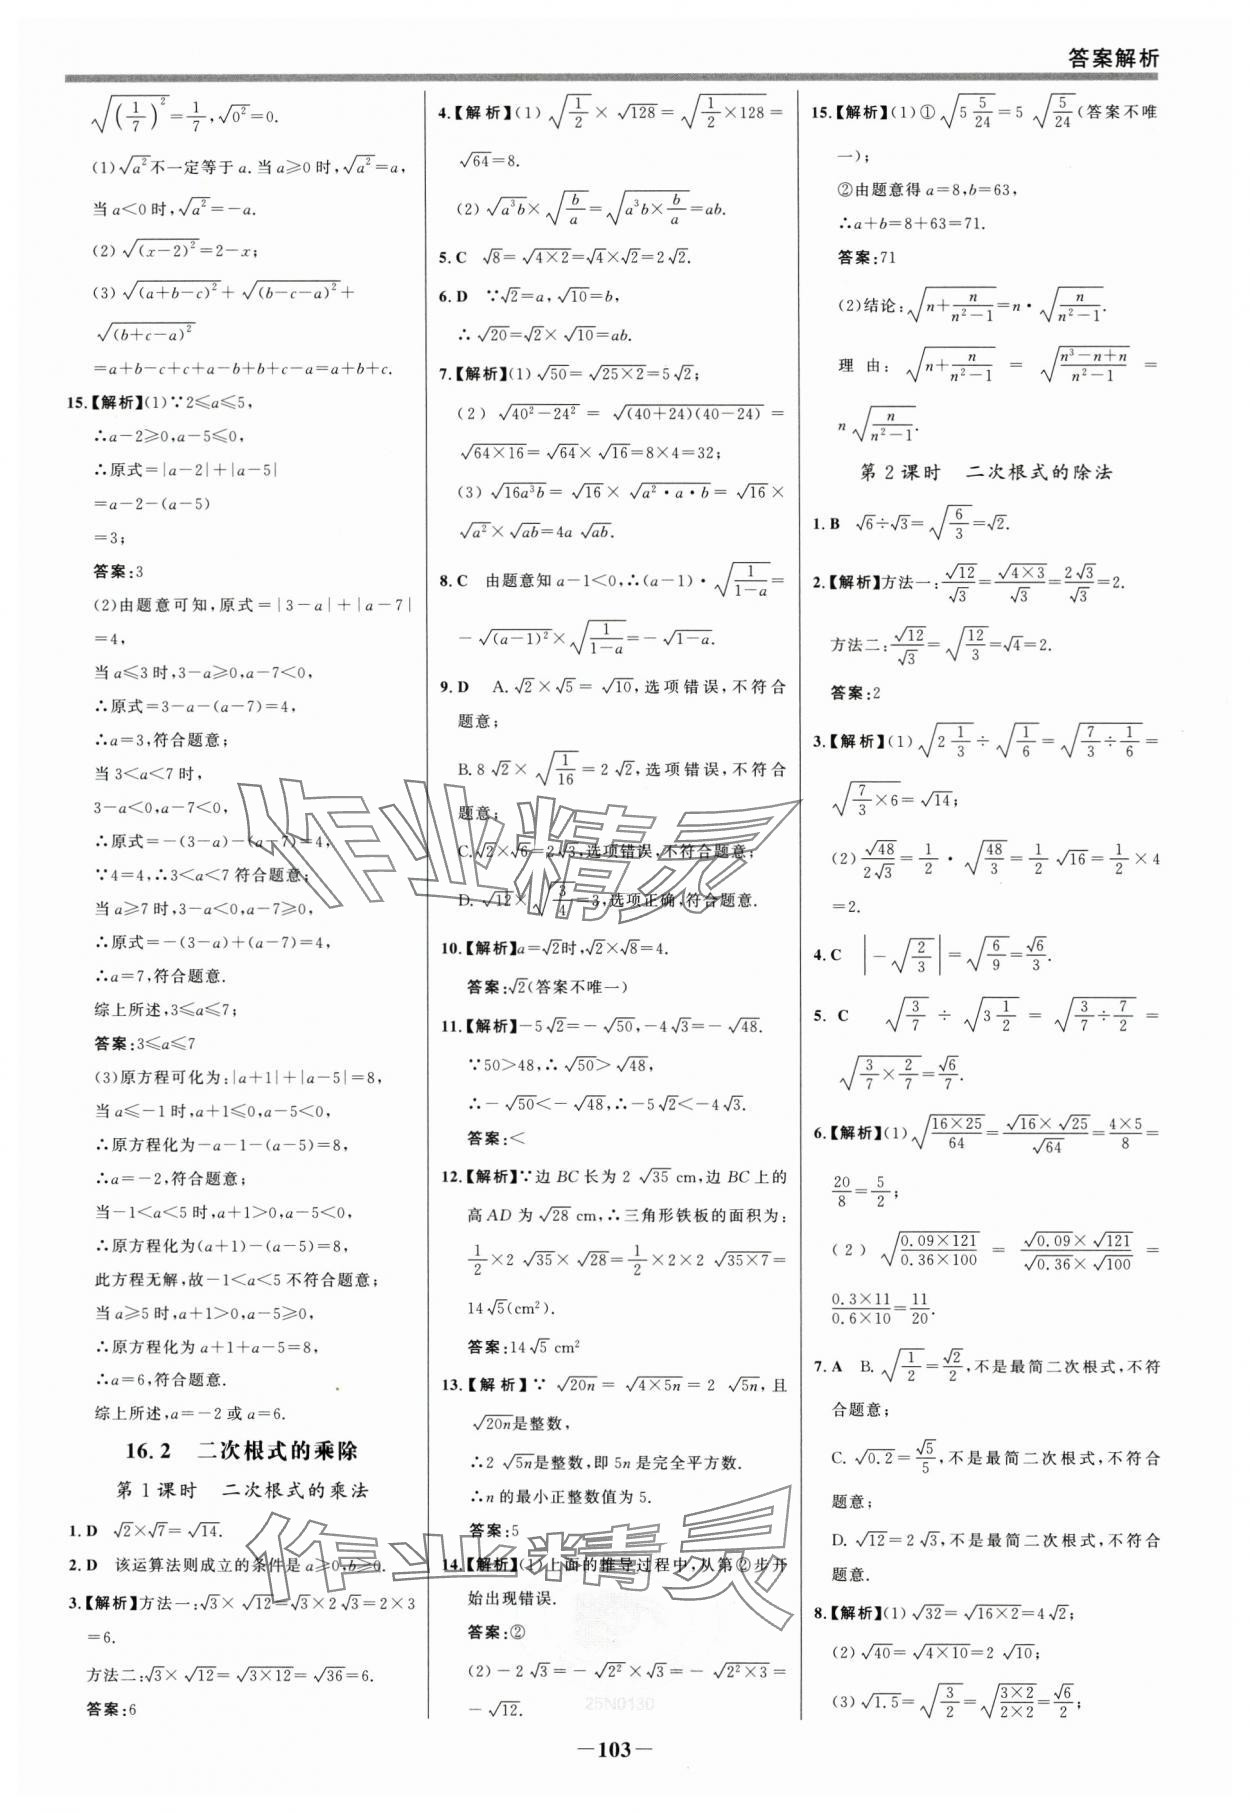 答案解析
√(1/7)²=1/7,√0²=0.
(1)√a²不一定等于a.当a≥0时,√a²=a,
当a<0时,√a²=-a.
(2)√(x-2)²=2-x;
(3)√(a+b-c)²+√(b-c-a)²+
√(b+c-a)²
=a+b-c+c+a-b+b+c-a=a+b+c.
15.【解析】(1)∵2≤a≤5,
∴a-2≥0,a-5≤0,
∴原式=|a-2|+|a-5|
=a-2-(a-5)
=3;
答案:3
(2)由题意可知,原式=|3-a|+|a-7|
=4,
当a≤3时,3-a≥0,a-7<0,
∴原式=3-a-(a-7)=4,
∴a=3,符合题意;
当3<a<7时,
3-a<0,a-7<0,
∴原式=-(3-a)-(a-7)=4,
∵4=4,∴3<a<7符合题意;
当a≥7时,3-a<0,a-7≥0,
∴原式=-(3-a)+(a-7)=4,
∴a=7,符合题意.
综上所述,3≤a≤7;
答案:3≤a≤7
(3)原方程可化为:|a+1|+|a-5|=8,
当a≤-1时,a+1≤0,a-5<0,
∴原方程化为-a-1-(a-5)=8,
∴a=-2,符合题意;
当-1<a<5时,a+1>0,a-5<0,
∴原方程化为(a+1)-(a-5)=8,
此方程无解,故-1<a<5不符合题意;
当a≥5时,a+1>0,a-5≥0,
∴原方程化为a+1+a-5=8,
∴a=6,符合题意.
综上所述,a=-2或a=6.
16.2 二次根式的乘除
第1课时 二次根式的乘法
1.D √2×√7=√14.
2.D 该运算法则成立的条件是a≥0,b≥0.
3.【解析】方法一:√3×√12=√3×2√3=2×3
=6.
方法二:√3×√12=√(3×12)=√36=6.
答案:6
4.【解析】(1)√(1/2)×√128=√(1/2×128)=
√64=8.
(2)√(a³b)×√(b/a)=√(a³b×b/a)=ab.
5.C √8=√(4×2)=√4×√2=2√2.
6.D ∵√2=a,√10=b,
∴√20=√2×√10=ab.
7.【解析】(1)√50=√(25×2)=5√2;
(2)√(40²-24²)=√((40+24)(40-24))=
√(64×16)=√64×√16=8×4=32;
(3)√(16a³b)=√16×√(a²·a·b)=√16×
√a²×√ab=4a√ab.
8.C 由题意知a-1<0,∴(a-1)·√(1/(1-a))=
-√(a-1)²×√(1/(1-a))=-√(1-a).
9.D A.√2×√5=√10,选项错误,不符合
题意;
B.8√2×√(1/16)=2√2,选项错误,不符合
题意;
C.√2×√6=2√3,选项错误,不符合题意;
D.√12×√(3/4)=3,选项正确,符合题意.
10.【解析】a=√2时,√2×√8=4.
答案:√2(答案不唯一)
11.【解析】-5√2=-√50,-4√3=-√48.
∵50>48,∴√50>√48,
∴-√50<-√48,∴-5√2<-4√3.
答案:<
12.【解析】∵边BC长为2√35 cm,边BC上的
高AD为√28 cm,∴三角形铁板的面积为:
1/2×2√35×√28=1/2×2×2√(35×7)=
14√5(cm²).
答案:14√5 cm²
13.【解析】∵√20n=√(4×5n)=2√5n,且
√20n是整数,
∴2√5n是整数,即5n是完全平方数.
∴n的最小正整数值为5.
答案:5
14.【解析】(1)上面的推导过程中,从第②步开
始出现错误.
答案:②
(2)-2√3=-√2²×√3=-√(2²×3)=
-√12.
15.【解析】(1)①√(5 5/24)=5√(5/24)(答案不唯
一);
②由题意得a=8,b=63,
∴a+b=8+63=71.
答案:71
(2)结论:√(n+n/(n²-1))=n·√(n/(n²-1)).
理由:√(n+n/(n²-1))=√((n³-n+n)/(n²-1))=
n√(n/(n²-1)).
第2课时 二次根式的除法
1.B √6÷√3=√(6/3)=√2.
2.【解析】方法一:√12/√3=√(4×3)/√3=2√3/√3=2.
方法二:√12/√3=√(12/3)=√4=2.
答案:2
3.【解析】(1)√(2 1/3)÷√(1/6)=√(7/3÷1/6)=
√(7/3×6)=√14;
(2)√48/(2√3)=1/2·√(48/3)=1/2√16=1/2×4
=2.
4.C |-√(2/3)|=√(6/9)=√6/3.
5.C √(3/7)÷√(3 1/2)=√(3/7÷7/2)=
√(3/7×2/7)=√6/7.
6.【解析】(1)√(16×25/64)=(√16×√25)/√64=(4×5)/8=
20/8=5/2;
(2)√((0.09×121)/(0.36×100))=(√0.09×√121)/(√0.36×√100)=
(0.3×11)/(0.6×10)=11/20.
7.A B.√(1/2)=√2/2,不是最简二次根式,不符
合题意;
C.√0.2=√5/5,不是最简二次根式,不符合
题意;
D.√12=2√3,不是最简二次根式,不符合
题意.
8.【解析】(1)√32=√(16×2)=4√2;
(2)√40=√(4×10)=2√10;
(3)√1.5=√(3/2)=√((3×2)/(2×2))=√6/2;
作业精灵
作业精灵
25N0130
—103—